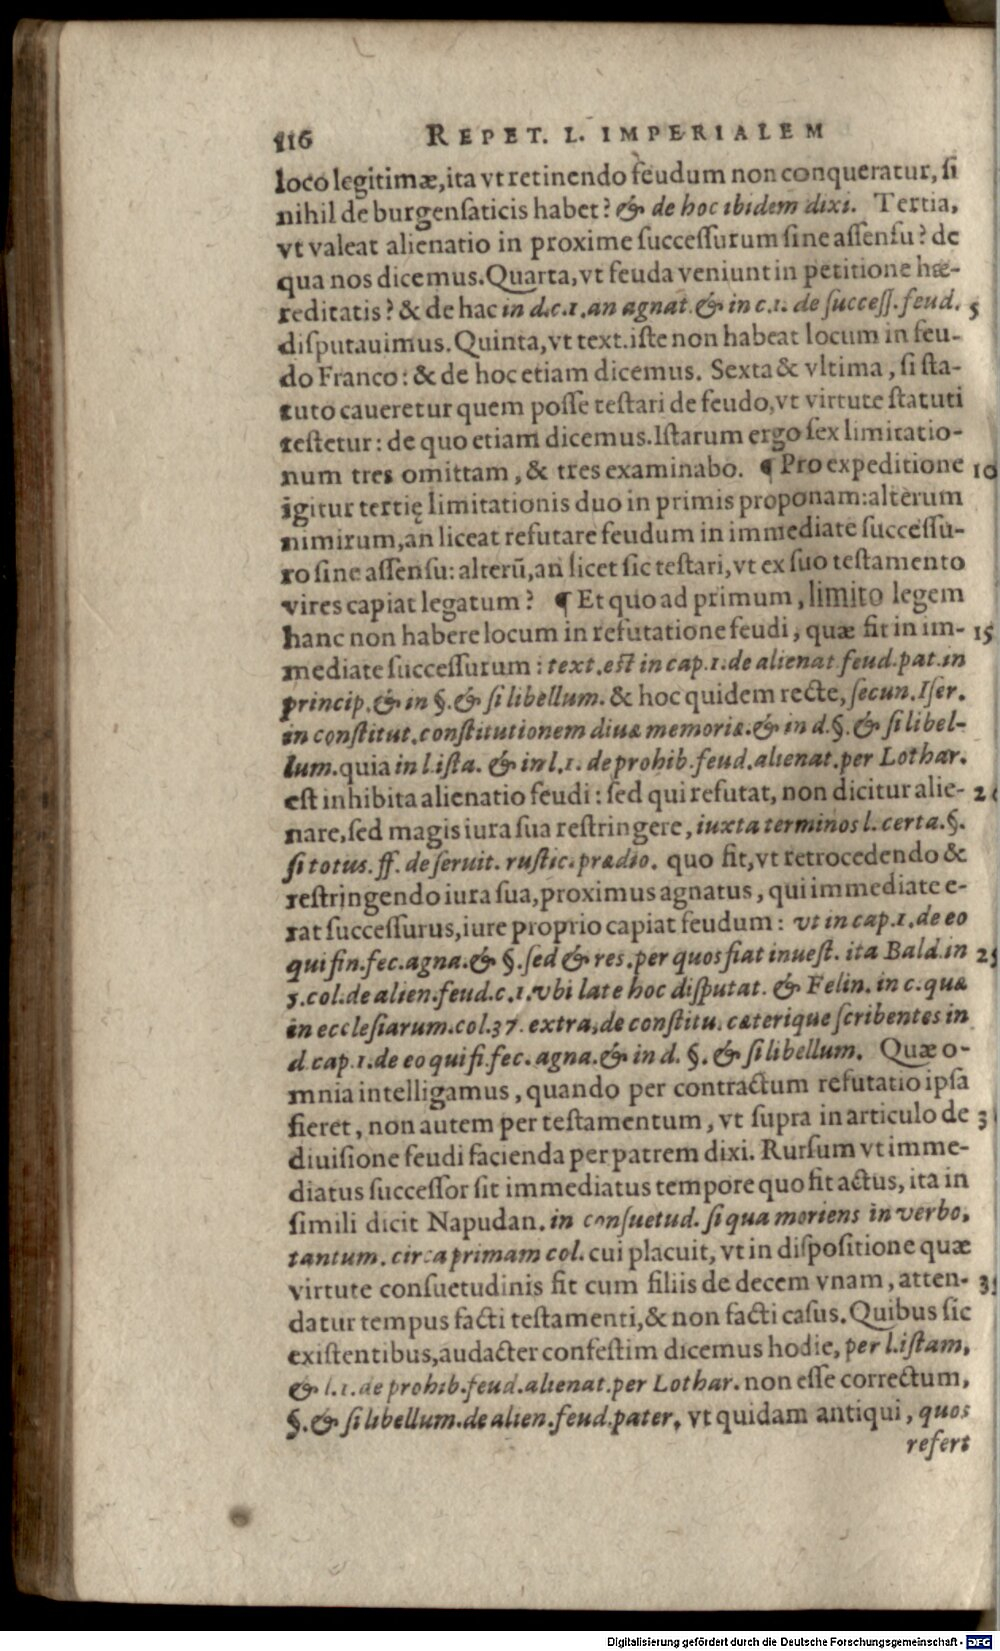 116 REPET. L. IMPERIALEM
loco legitimæ, ita vt retinendo feudum non conqueratur, si
nihil de burgensaticis habet? & de hoc ibidem dixi. Tertia,
vt valeat alienatio in proxime successurum sine assensu? de
qua nos dicemus. Quarta, vt feuda veniunt in petitione hæ-
reditatis? & de hac in d.c.1. an agnat. & in c.1. de success. feud. 5
disputauimus. Quinta, vt text. iste non habeat locum in feu-
do Franco: & de hoc etiam dicemus. Sexta & vltima, si sta-
tuto caueretur quem posse testari de feudo, vt virtute statuti
testetur: de quo etiam dicemus. Istarum ergo sex limitatio-
num tres omittam, & tres examinabo. ¶ Pro expeditione 10
igitur tertię limitationis duo in primis proponam: alterum
nimirum, an liceat refutare feudum in immediate successu-
ro sine assensu: alterū, an licet sic testari, vt ex suo testamento
vires capiat legatum? ¶ Et quo ad primum, limito legem
hanc non habere locum in refutatione feudi, quæ fit in im- 15
mediate successurum: text. est in cap. 1. de alienat. feud. pat. in
princip. & in §. & si libellum. & hoc quidem recte, secun. Iser.
in constitut. constitutionem diuæ memoriæ. & in d. §. & si libel-
lum. quia in l. ista. & in l. 1. de prohib. feud. alienat. per Lothar.
est inhibita alienatio feudi: sed qui refutat, non dicitur alie- 2
nare, sed magis iura sua restringere, iuxta terminos l. certa. §.
si totus. ff. de seruit. rustic. prædio. quo fit, vt retrocedendo &
restringendo iura sua, proximus agnatus, qui immediate e-
rat successurus, iure proprio capiat feudum: vt in cap. 1. de eo
qui fin. fec. agna. & §. sed & res. per quos fiat inuest. ita Bald. in 25
3. col. de alien. feud. c. 1. vbi late hoc disputat. & Felin. in c. quæ
in ecclesiarum. col. 37. extra, de constitu. cæterique scribentes in
d. cap. 1. de eo qui fi. fec. agna. & in d. §. & si libellum. Quæ o-
mnia intelligamus, quando per contractum refutatio ipsa
fieret, non autem per testamentum, vt supra in articulo de 3
diuisione feudi facienda per patrem dixi. Rursum vt imme-
diatus successor sit immediatus tempore quo fit actus, ita in
simili dicit Napudan. in consuetud. si qua moriens in verbo,
tantum. circa primam col. cui placuit, vt in dispositione quæ
virtute consuetudinis fit cum filiis de decem vnam, atten- 35
datur tempus facti testamenti, & non facti casus. Quibus sic
existentibus, audacter confestim dicemus hodie, per l. istam,
& l. 1. de prohib. feud. alienat. per Lothar. non esse correctum,
§. & si libellum. de alien. feud. pater. vt quidam antiqui, quos
refert
Digitalisierung gefördert durch die Deutsche Forschungsgemeinschaft - DFG